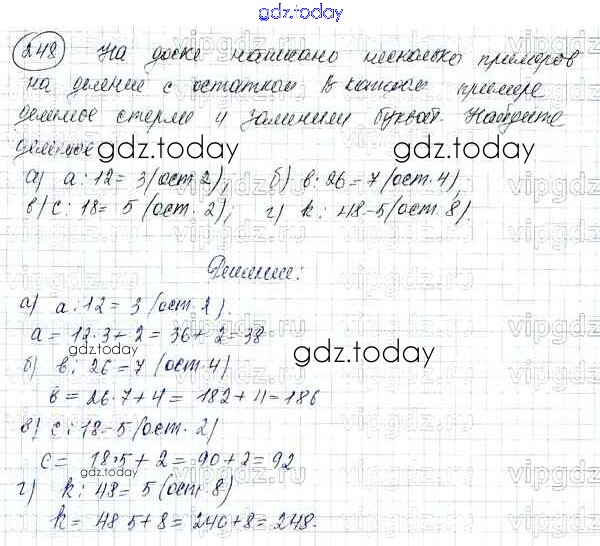 gdz.today
248 На доске написано несколько примеров
на деление с остатком. В каждом примере
делимое стерли и заменили буквой. Найдите
делимое
gdz.today gdz.today
а) a : 12 = 3 (ост. 2); б) в : 26 = 7 (ост. 4)
в) c : 18 = 5 (ост. 2); г) k : 48 = 5 (ост. 8).
Решение:
а) a : 12 = 3 (ост. 2).
a = 12·3 + 2 = 36 + 2 = 38
gdz.today
б) в : 26 = 7 (ост. 4)
gdz.today
в = 26·7 + 4 = 182 + 4 = 186
в) c : 18 = 5 (ост. 2)
c = 18·5 + 2 = 90 + 2 = 92
г) k : 48 = 5 (ост. 8)
k = 48·5 + 8 = 240 + 8 = 248.